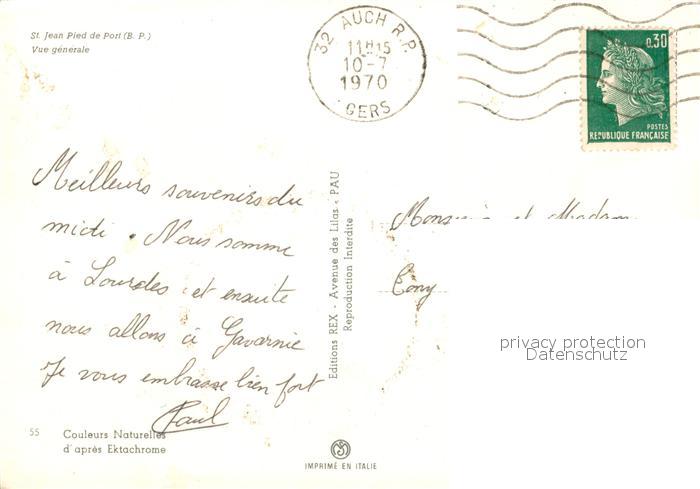 St. Jean Pied de Port (B. P.)
Vue générale
32 AUCH R.P.
11H15
10-7
1970
GERS
0,30
POSTES
REPUBLIQUE FRANÇAISE
Meilleurs souvenirs du
midi. Nous somme
à Lourdes et ensuite
nous allons à Gavarnie
Je vous embrasse bien fort
Paul
Editions REX - Avenue des Lilas - PAU
Reproduction Interdite
et Madam
Cony
privacy protection
Datenschutz
55
Couleurs Naturelles
d'après Ektachrome
IMPRIMÉ EN ITALIE